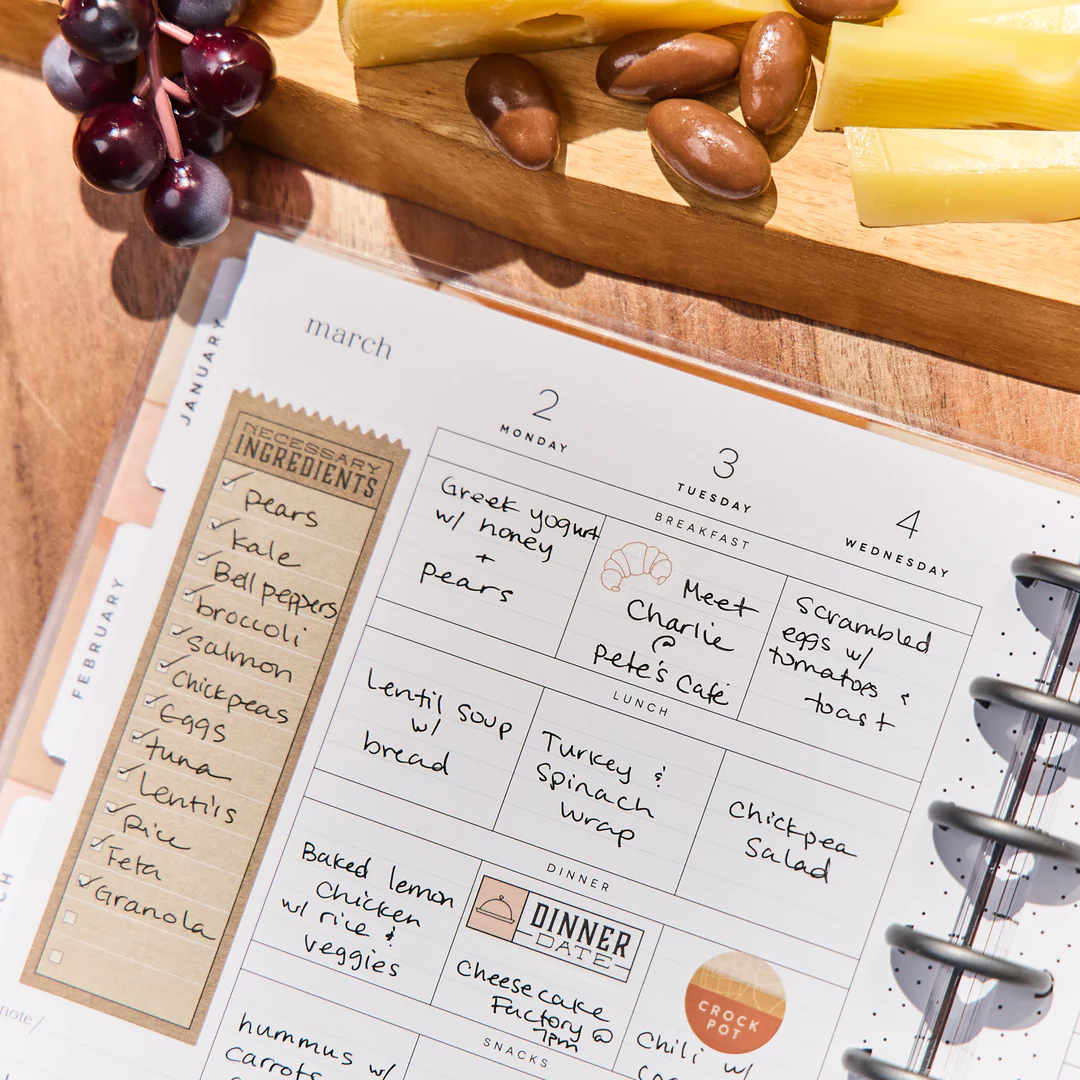 march
JANUARY
FEBRUARY
NECESSARY
INGREDIENTS
pears
kale
Bell peppers
broccoli
Salmon
Chickpeas
Eggs
tuna
Lentils
Rice
Feta
Granola
note/
2
MONDAY
3
TUESDAY
4
WEDNESDAY
BREAKFAST
Greek yogurt
w/ honey
+
pears
Meet
Charlie
@
Pete's Café
Scrambled
eggs w/
tomatoes &
toast
LUNCH
Lentil Soup
w/
bread
Turkey &
Spinach
Wrap
Chickpea
Salad
DINNER
Baked lemon
Chicken
w/ rice &
veggies
DINNER
DATE
Cheesecake
Factory @
7pm
CROCK
POT
Chili w/
SNACKS
hummus w/
carrots